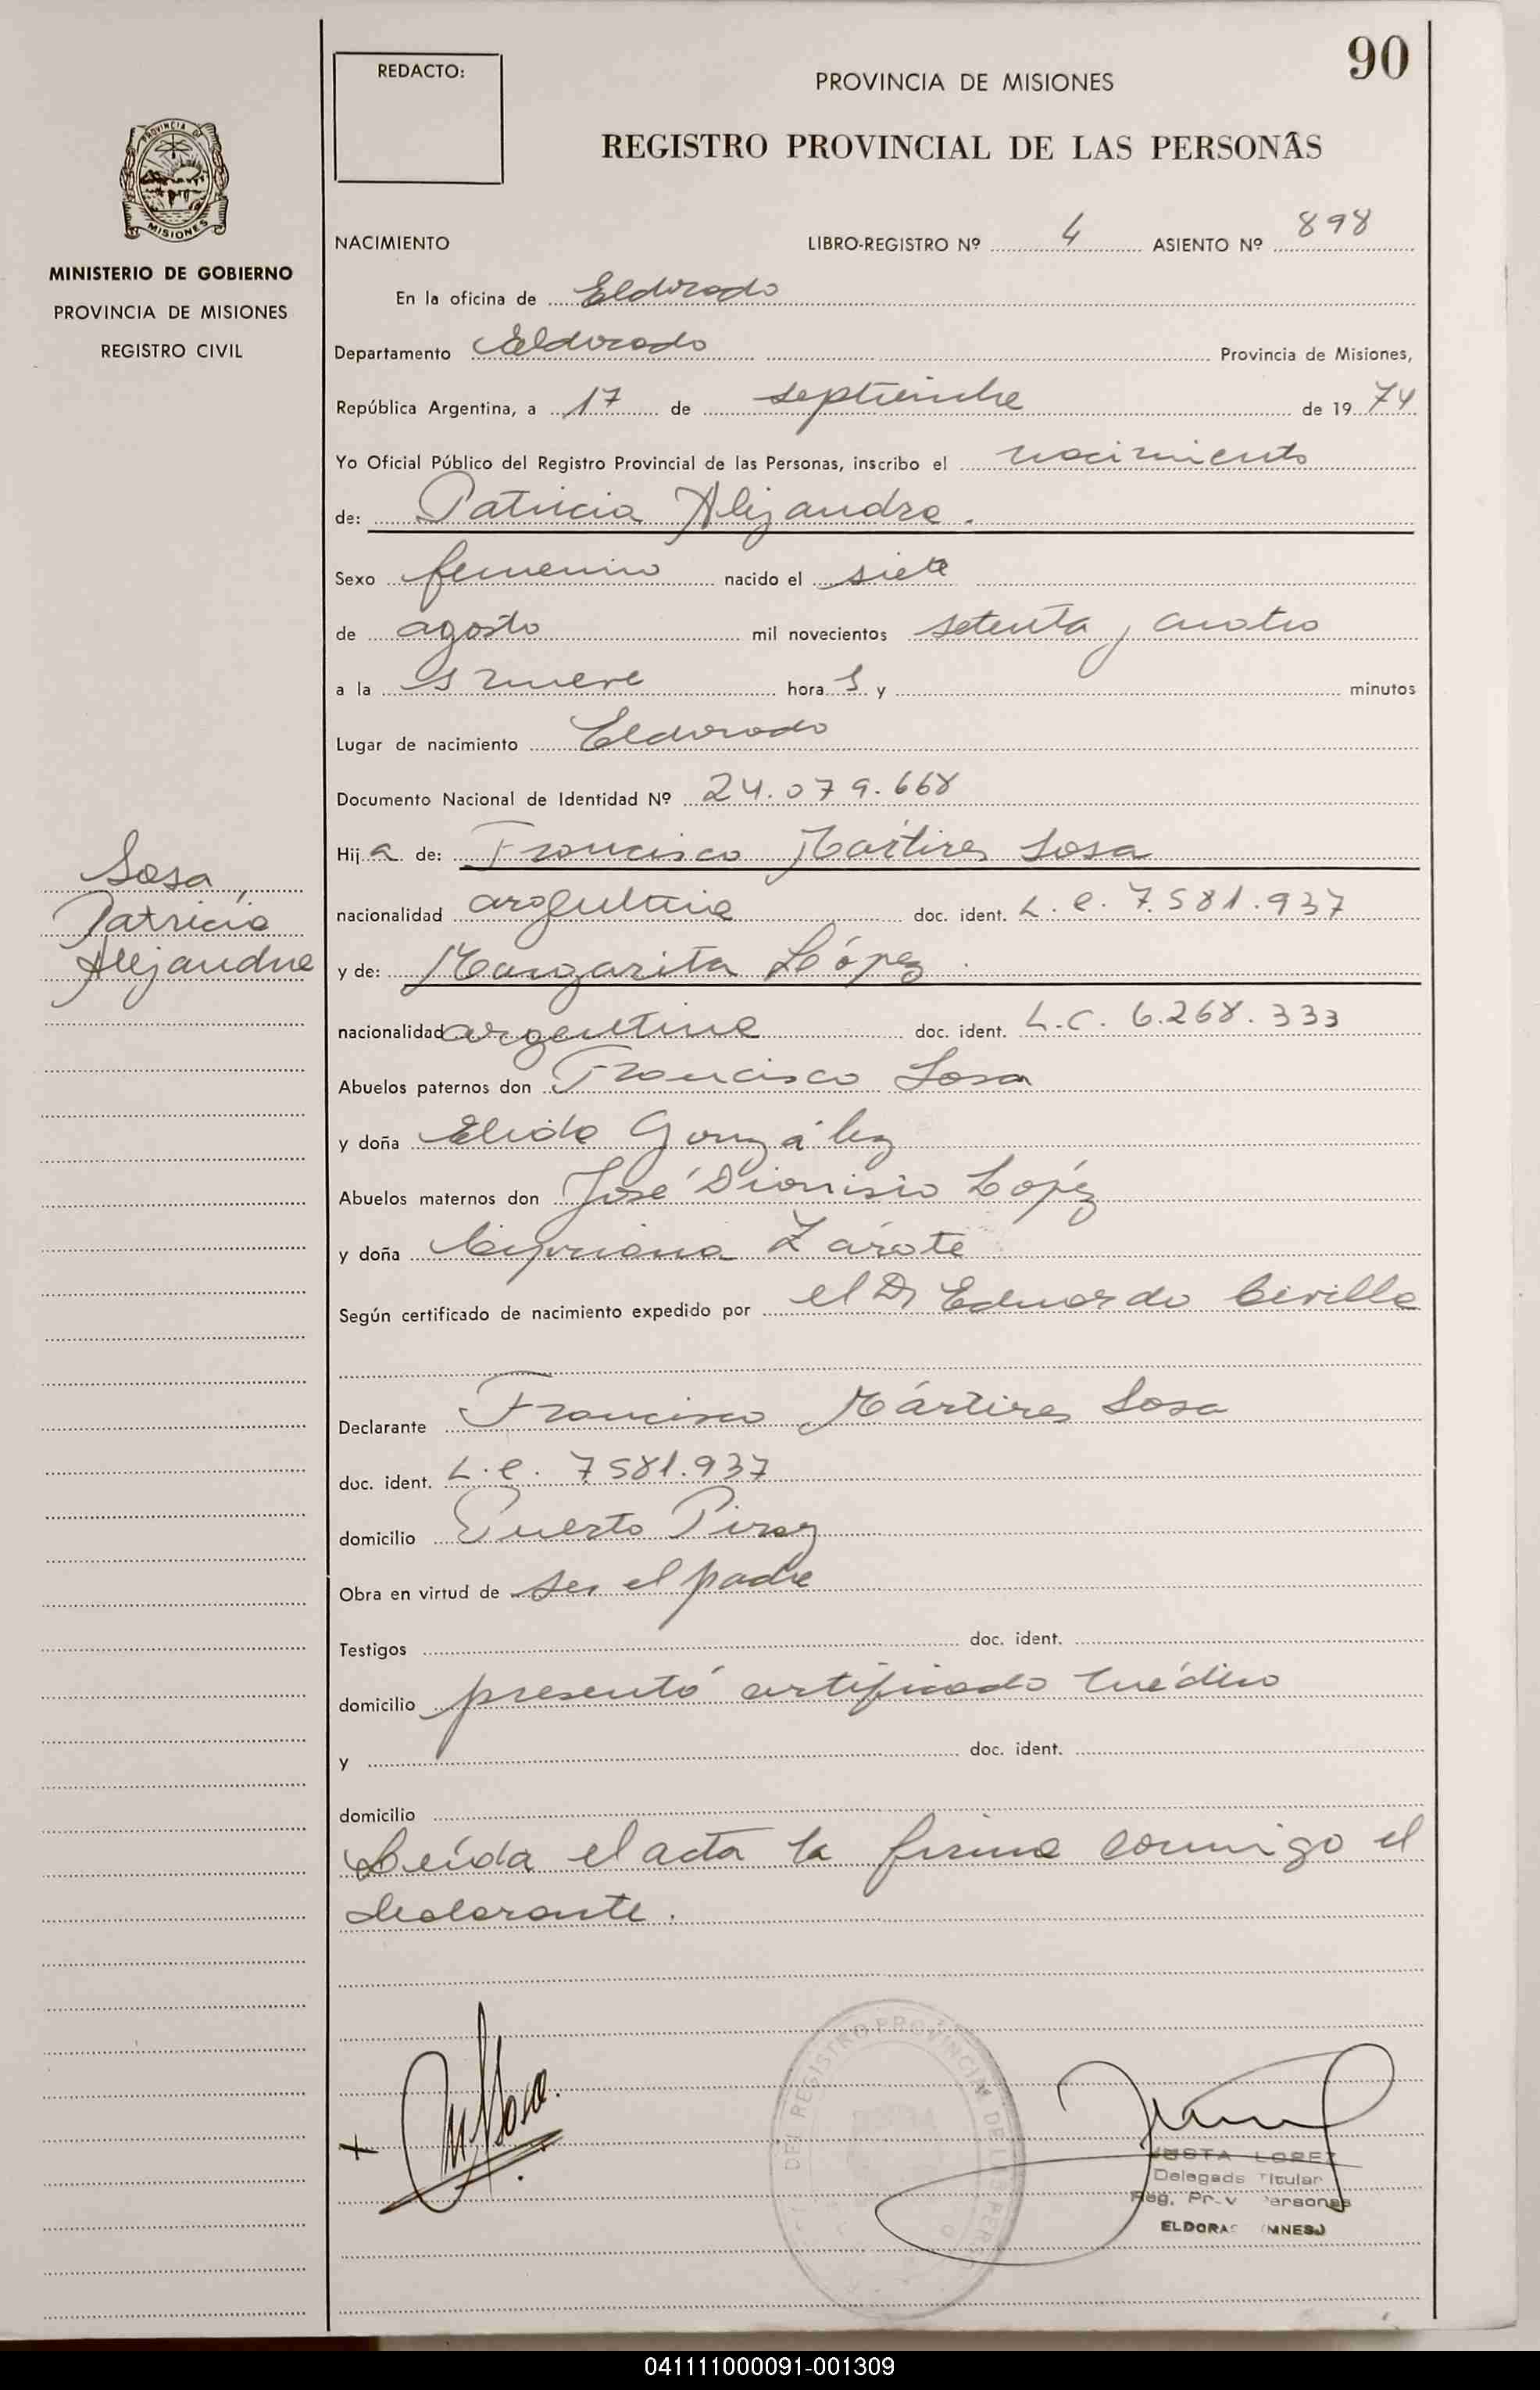 90
REDACTO:
PROVINCIA DE MISIONES
REGISTRO PROVINCIAL DE LAS PERSONAS
PROVINCIA DE
MISIONES
MINISTERIO DE GOBIERNO
PROVINCIA DE MISIONES
REGISTRO CIVIL
NACIMIENTO LIBRO-REGISTRO Nº 4 ASIENTO Nº 898
En la oficina de Eldorado
Departamento Eldorado Provincia de Misiones,
República Argentina, a 17 de septiembre de 1974
Yo Oficial Público del Registro Provincial de las Personas, inscribo el nacimiento
de: Patricia Alejandra.
Sexo femenino nacido el siete
de agosto mil novecientos setenta y cuatro
a la s nueve hora s y minutos
Lugar de nacimiento Eldorado
Documento Nacional de Identidad Nº 24.079.668
Hija de: Francisco Mártires Sosa
nacionalidad argentina doc. ident. L.E. 7.581.937
y de: Margarita López.
nacionalidad argentina doc. ident. L.C. 6.268.333
Abuelos paternos don Francisco Sosa
y doña Elida González
Abuelos maternos don José Dionisio López
y doña Cipriana Zárate
Según certificado de nacimiento expedido por el Dr Eduardo Cirilla
Declarante Francisco Mártires Sosa
doc. ident. L.E. 7581.937
domicilio Puerto Piray
Obra en virtud de ser el padre
Testigos doc. ident.
domicilio presentó certificado médico
y doc. ident.
domicilio
Leída el acta la firma conmigo el
declarante.
Sosa
Patricia
Alejandra
DEL REGISTRO PROVINCIAL DE LAS PERS
JUSTA LOPEZ
Delegada Titular
Reg. Prov Personas
ELDORA (MNES.)
041111000091-001309